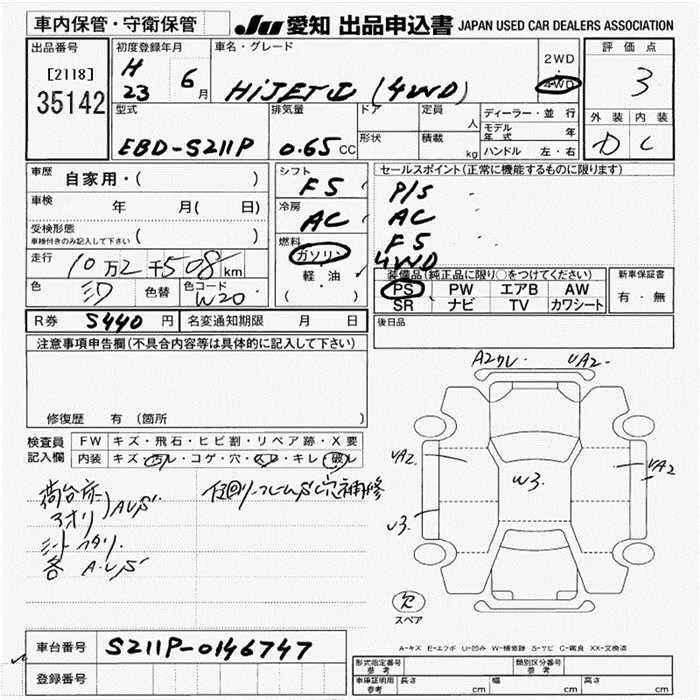 車内保管・守衛保管
JU 愛知 出品申込書 JAPAN USED CAR DEALERS ASSOCIATION
出品番号
[2118]
35142
初度登録年月
H
23 6月
車名・グレード
HiJET (4WD)
2WD
4WD
評価点
3
外装 内装
D C
型式
EBD-S211P
排気量
0.65 CC
ドア
形状
定員
人
積載
kg
ディーラー・並行
モデル年式 年
ハンドル 左・右
車歴 自家用・( )
車検 年 月(日)
受検形態
車検付きのみ記入して下さい ( )
走行 10万2千508km
色 色替 色コード W20
シフト
F5
冷房
AC
燃料
ガソリン
軽・油
( )
セールスポイント(正常に機能するものに限ります)
P/S
AC
F5
4WD
装備品(純正品に限り○をつけてください)
PS PW エアB AW
SR ナビ TV カワシート
新車保証書
有・無
R券 5440円 名変通知期限 月 日
後日品
注意事項申告欄(不具合内容等は具体的に記入して下さい)
修復歴 有(箇所 )
検査員記入欄
FW キズ・飛石・ヒビ割・リペア跡・X要
内装 キズ・汚レ・コゲ・穴・スレ・キレ・破レ
荷台床
アオリ) AUS
各 A.US
補修
A2 UA2
UA2
W3
UA2
U3
欠
スペア
A-キズ E-エクボ U-凹み W-補修跡 S-サビ C-腐食 XX-交換済
車台番号 S211P-0146747
登録番号
型式指定番号
参考
類別区分番号
参考
車庫証明用
参考
長さ cm 幅 cm 高さ cm